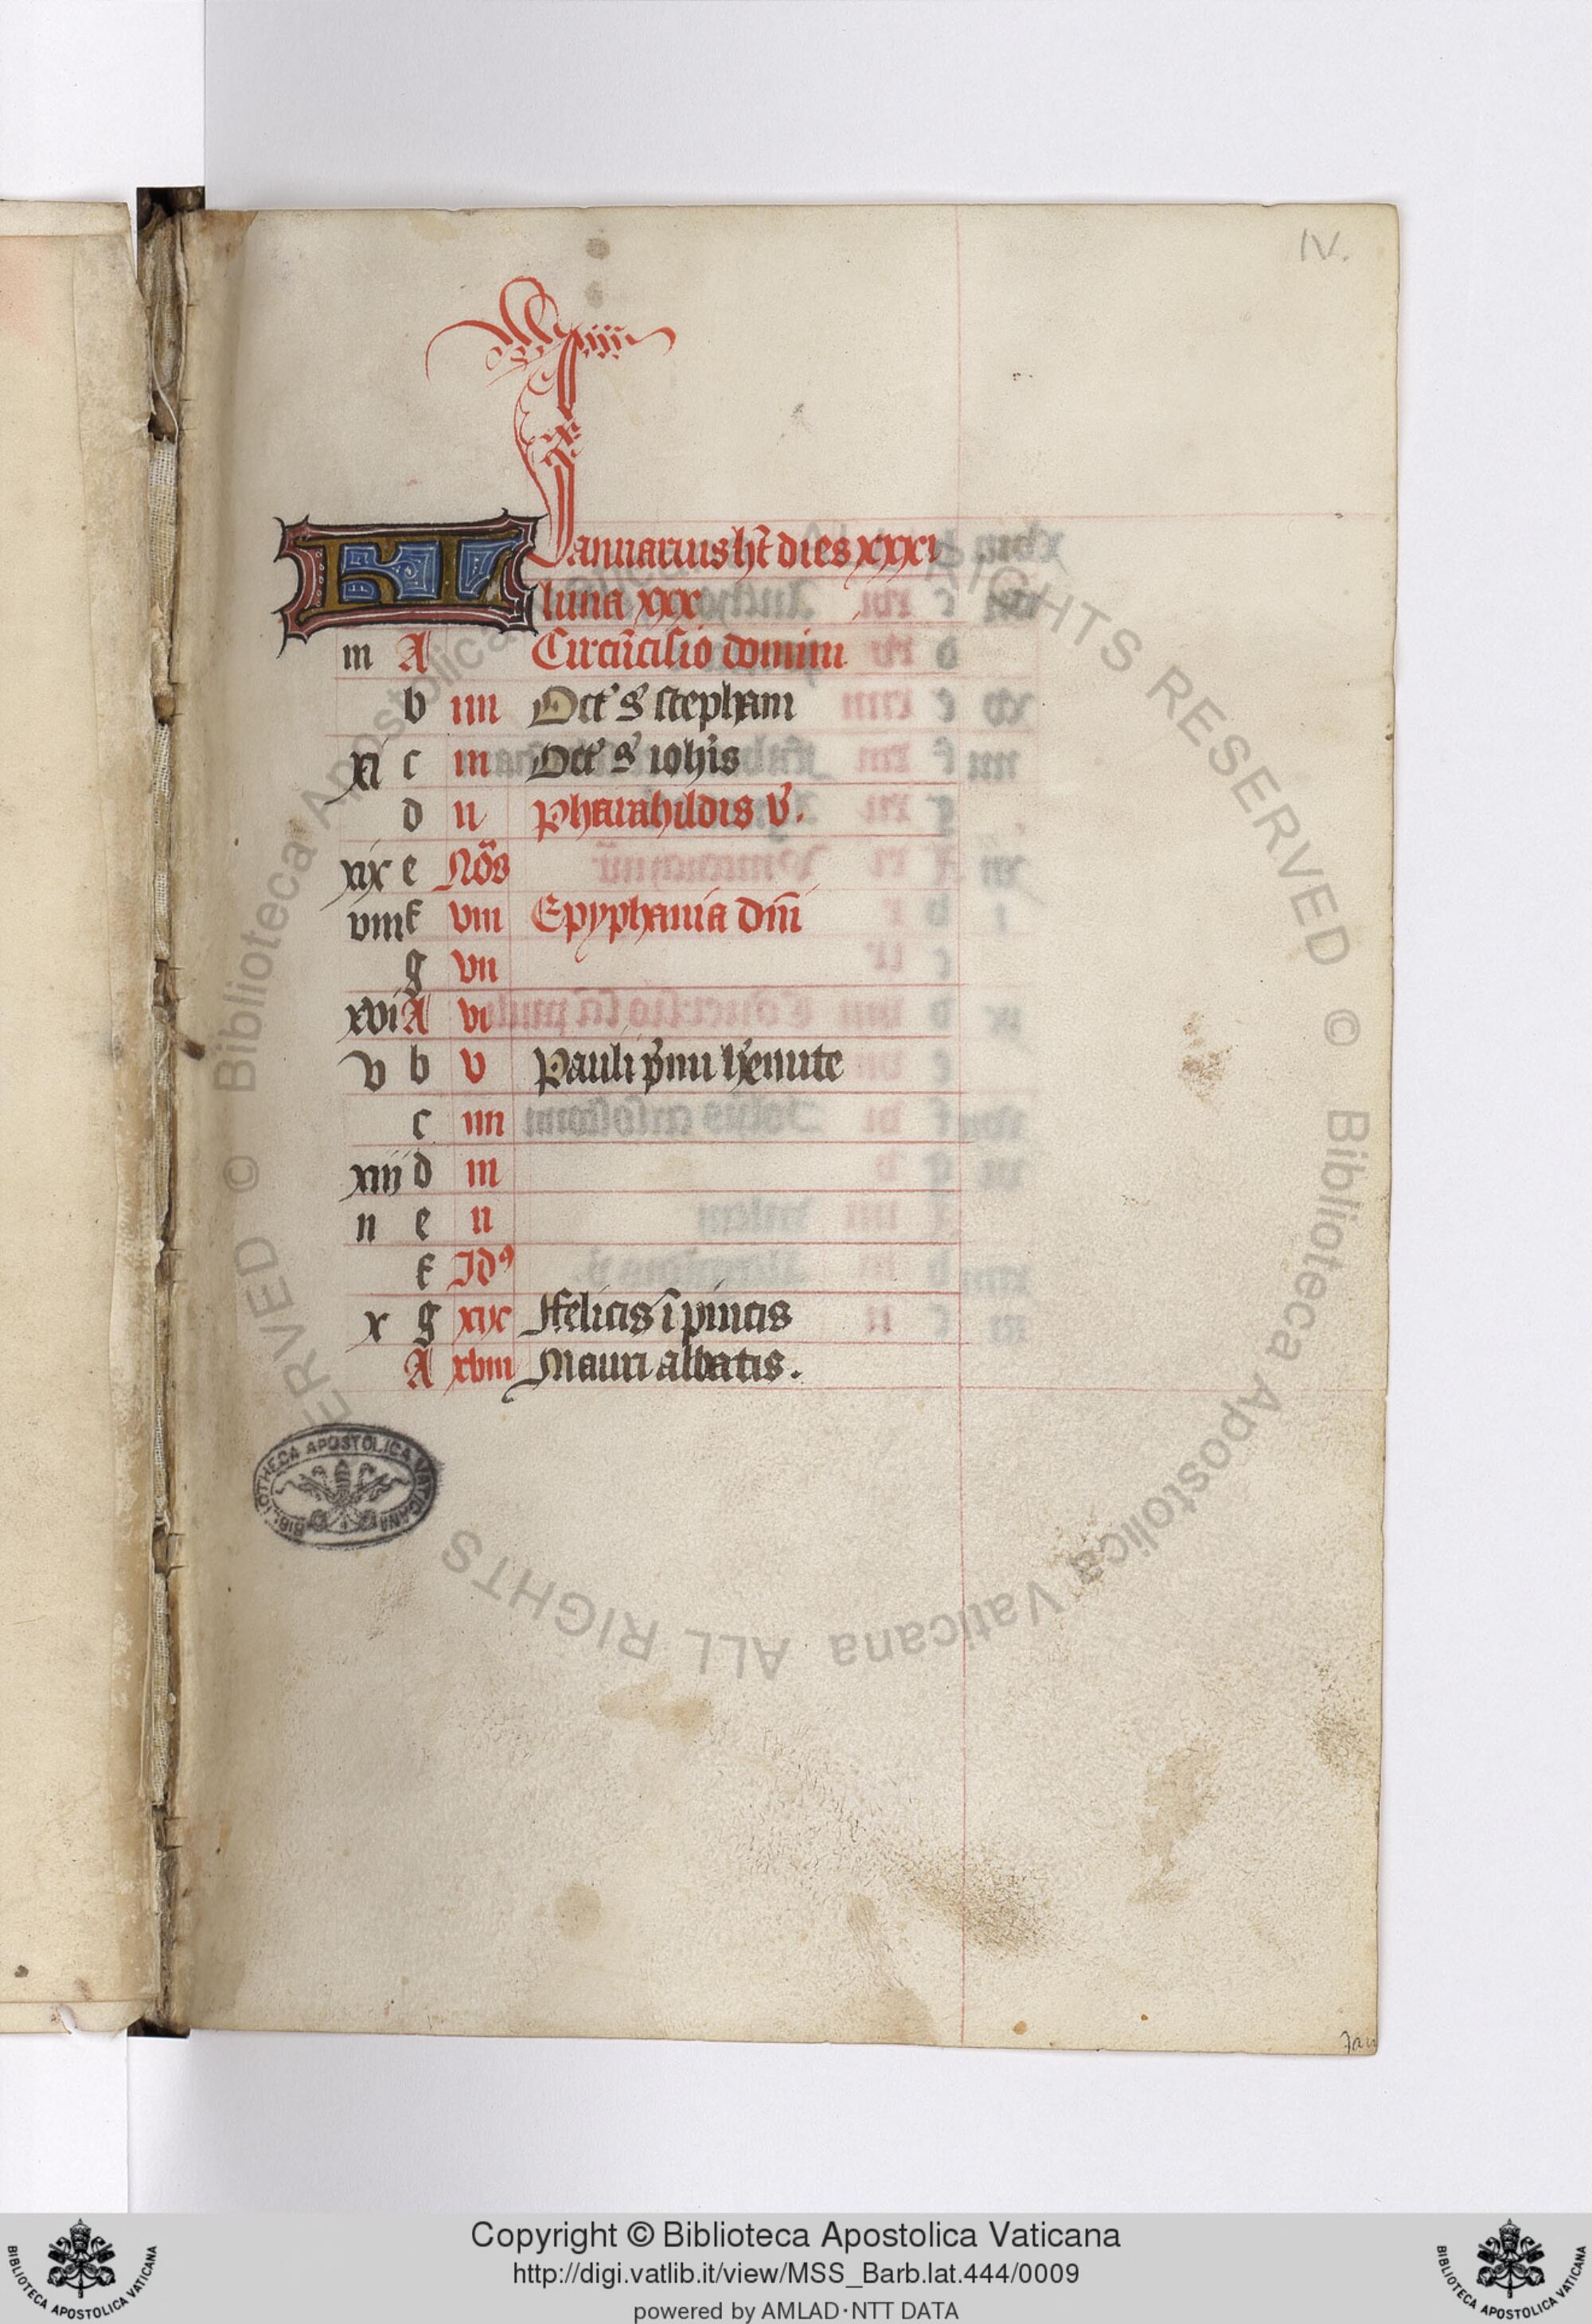 IV.
KL Januarius ht̄ dies xxxi
luna xxx
iii A Circūcisio domini
b iiii Oct' s' stephani
xi c iii Oct' s' ioh'is
d ii Pharahildis v'.
xix e Nōs
viii f viii Epyphania dn̄i
g vii
xvi A vi
v b v Pauli p'mi h'emite
c iiii
xiii d iii
ii e ii
f Idꝰ
x g xix Felicis ī pincis
A xviii Mauri abbatis.
BIBLIOTHECA APOSTOLICA VATICANA
Jan
© Biblioteca Apostolica Vaticana ALL RIGHTS RESERVED
Copyright © Biblioteca Apostolica Vaticana
http://digi.vatlib.it/view/MSS_Barb.lat.444/0009
powered by AMLAD·NTT DATA
BIBLIOTECA APOSTOLICA VATICANA
BIBLIOTECA APOSTOLICA VATICANA